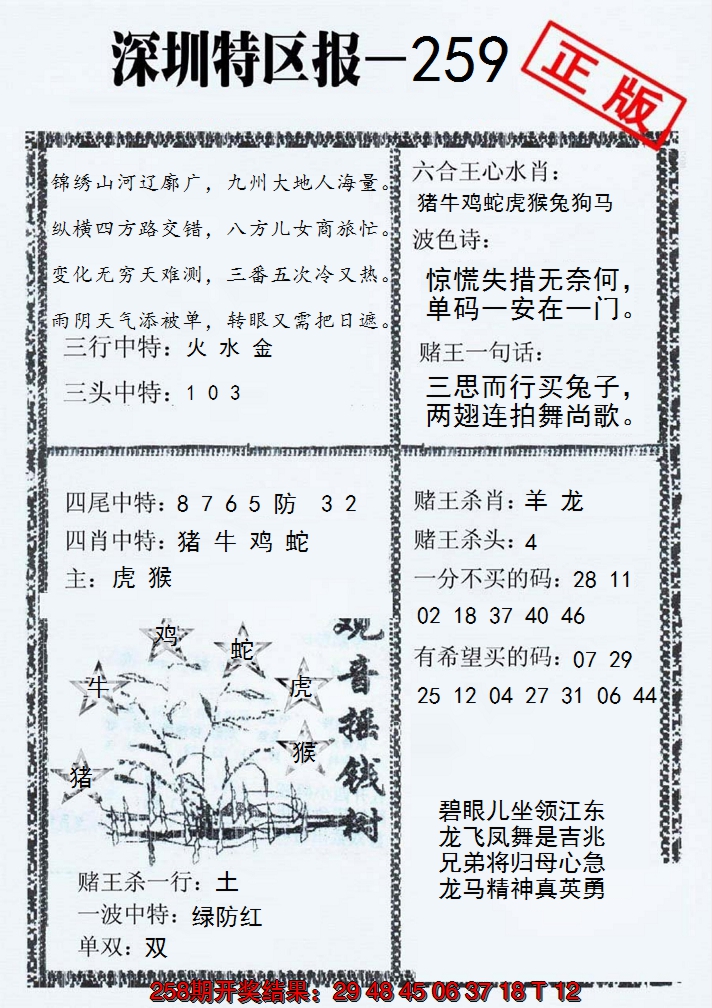 深圳特区报—259
正版
锦绣山河辽廓广，九州大地人海量。
纵横四方路交错，八方儿女商旅忙。
变化无穷天难测，三番五次冷又热。
雨阴天气添被单，转眼又需把日遮。
三行中特：火 水 金
三头中特：1 0 3
六合王心水肖：
猪牛鸡蛇虎猴兔狗马
波色诗：
惊慌失措无奈何，
单码一安在一门。
赌王一句话：
三思而行买兔子，
两翅连拍舞尚歌。
四尾中特：8 7 6 5 防 3 2
四肖中特：猪 牛 鸡 蛇
主：虎 猴
鸡
蛇
牛
虎
猴
猪
观音摇钱树
赌王杀一行：土
一波中特：绿防红
单双：双
赌王杀肖：羊 龙
赌王杀头：4
一分不买的码：28 11
02 18 37 40 46
有希望买的码：07 29
25 12 04 27 31 06 44
碧眼儿坐领江东
龙飞凤舞是吉兆
兄弟将归母心急
龙马精神真英勇
258期开奖结果：29 48 45 06 37 18 T 12